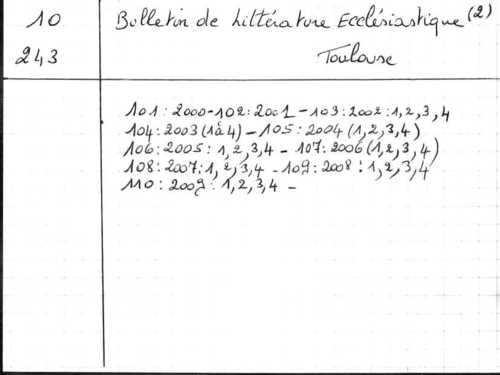 10
243
Bulletin de Littérature Ecclésiastique (2)
Toulouse
101 : 2000 - 102 : 2001 - 103 : 2002 : 1, 2, 3, 4
104 : 2003 (1 à 4) - 105 : 2004 (1, 2, 3, 4)
106 : 2005 : 1, 2, 3, 4 - 107 : 2006 (1, 2, 3, 4)
108 : 2007 : 1, 2, 3, 4 - 109 : 2008 : 1, 2, 3, 4
110 : 2009 : 1, 2, 3, 4 -